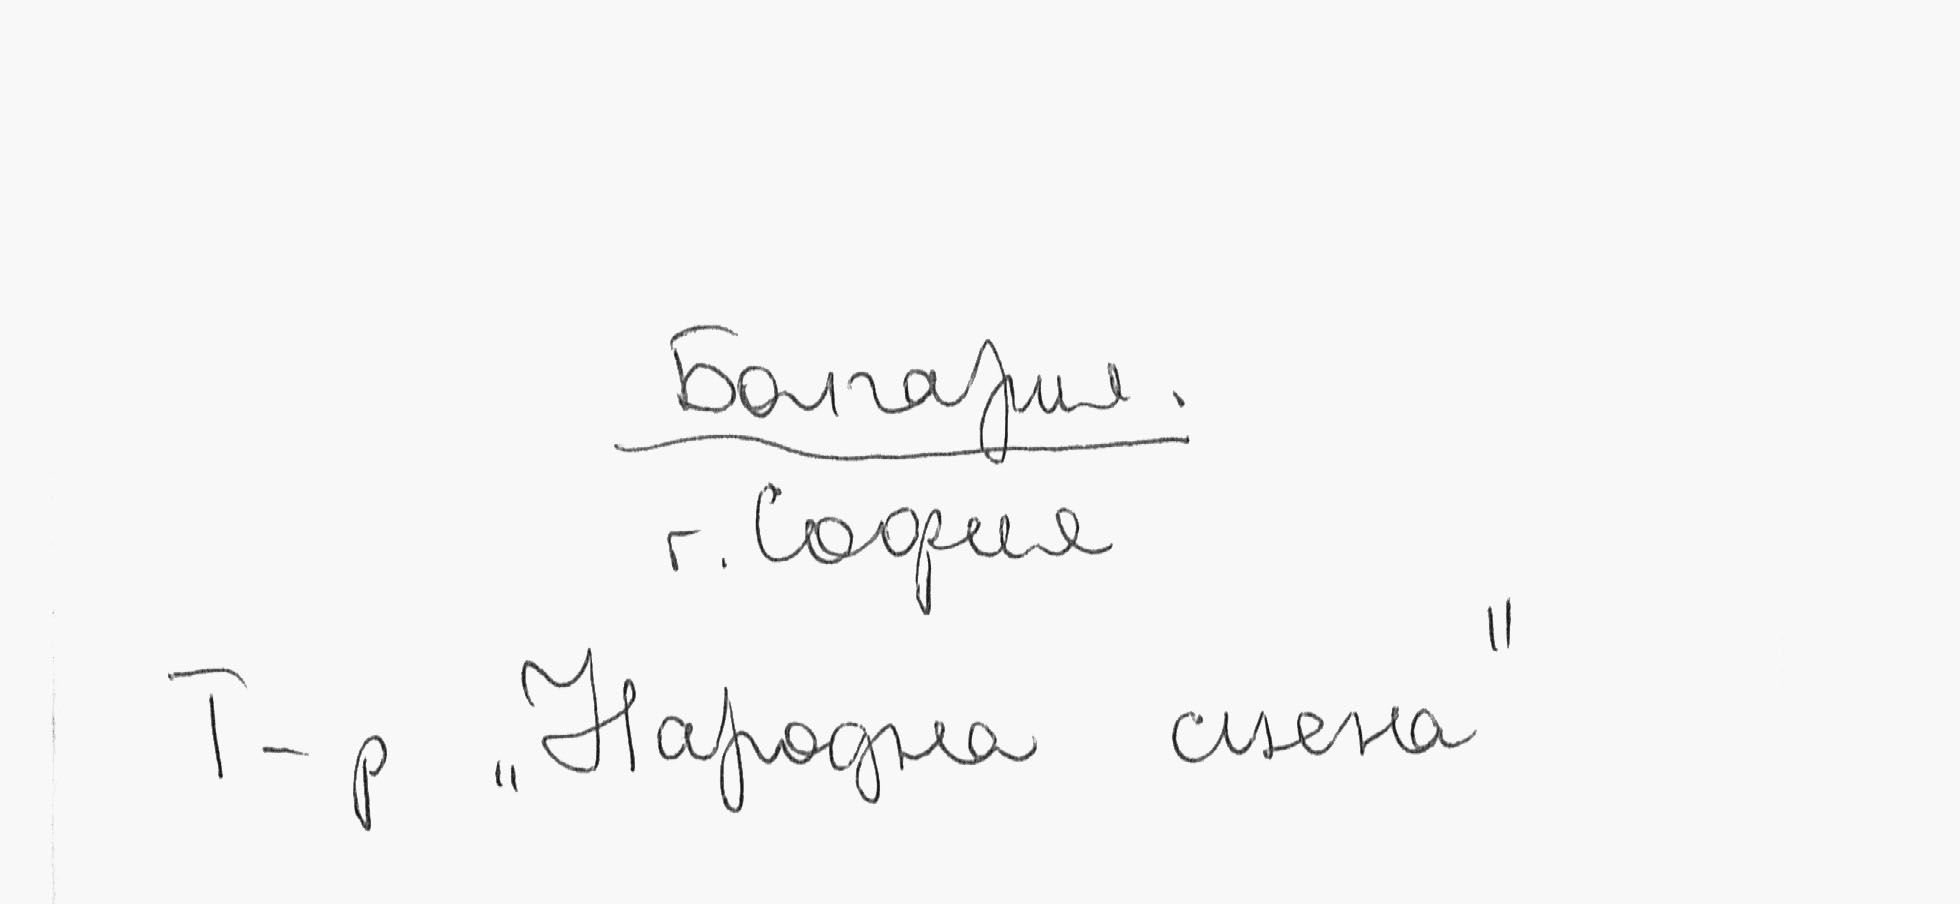 Болгария.
г. София
Т-р „Народна сцена"